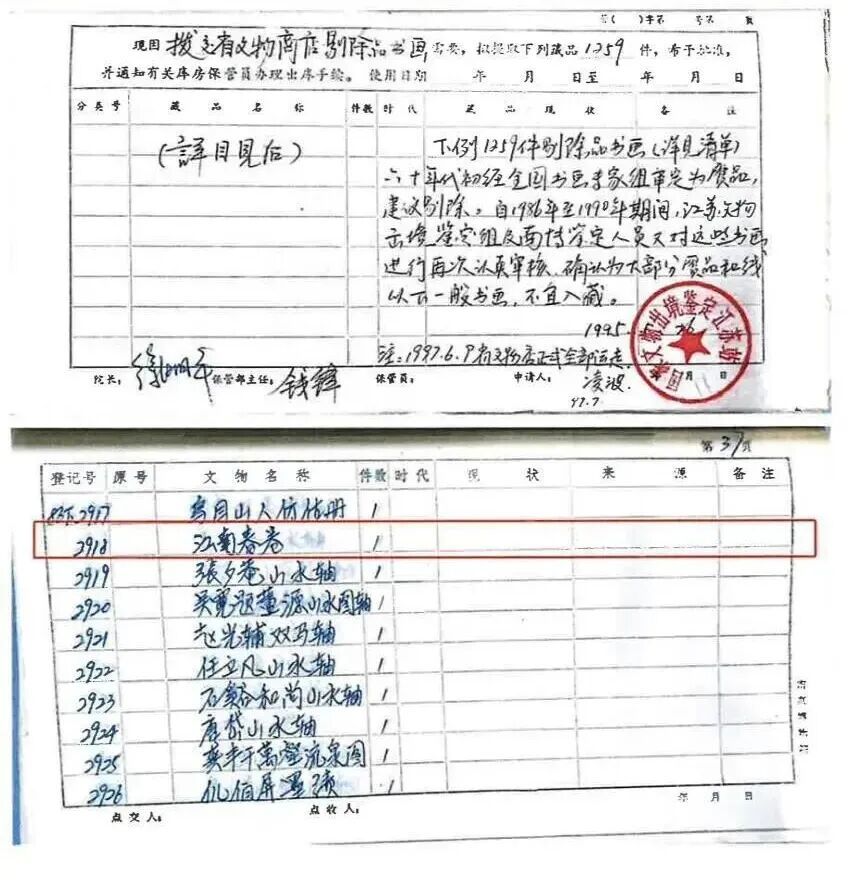 第( )字第 号第 页
现因拨交省文物商店剔除品书画需要,拟提取下列藏品1259件,希予批准,
并通知有关库房保管员办理出库手续。使用日期 年 月 日至 年 月 日
分类号 藏品名称 件数 时代 藏品现状 备注
(詳目見后)
下例1259件剔除品书画(详见清单)
六十年代初经全国书画专家组审定为赝品,
建议剔除。自1986年至1990年期间,江苏文物
出境鉴定组及南博鉴定人员又对这些书画
进行再次认真审核,确认为大部分赝品和线
以云一般书画,不宜入藏。
1995
注:1997.6.9省文物店正式全部运走
院长: 保管部主任:钱锋 保管员: 申请人:凌波 月 日
97.7.
国家文物出境鉴定江苏站
第37页
登记号 原号 文物名称 件数 时代 现状 来源 备注
2917 乌目山人仿古册 1
2918 江南春卷 1
2919 張夕菴山水轴 1
2920 吴寬题董源山水图轴 1
2921 赵光辅双马轴 1
2922 任立凡山水轴 1
2923 石谿和尚山水轴 1
2924 唐岱山水轴 1
2925 流泉图 1
2926 屏墨 1
点交人: 点收人: 年 月 日